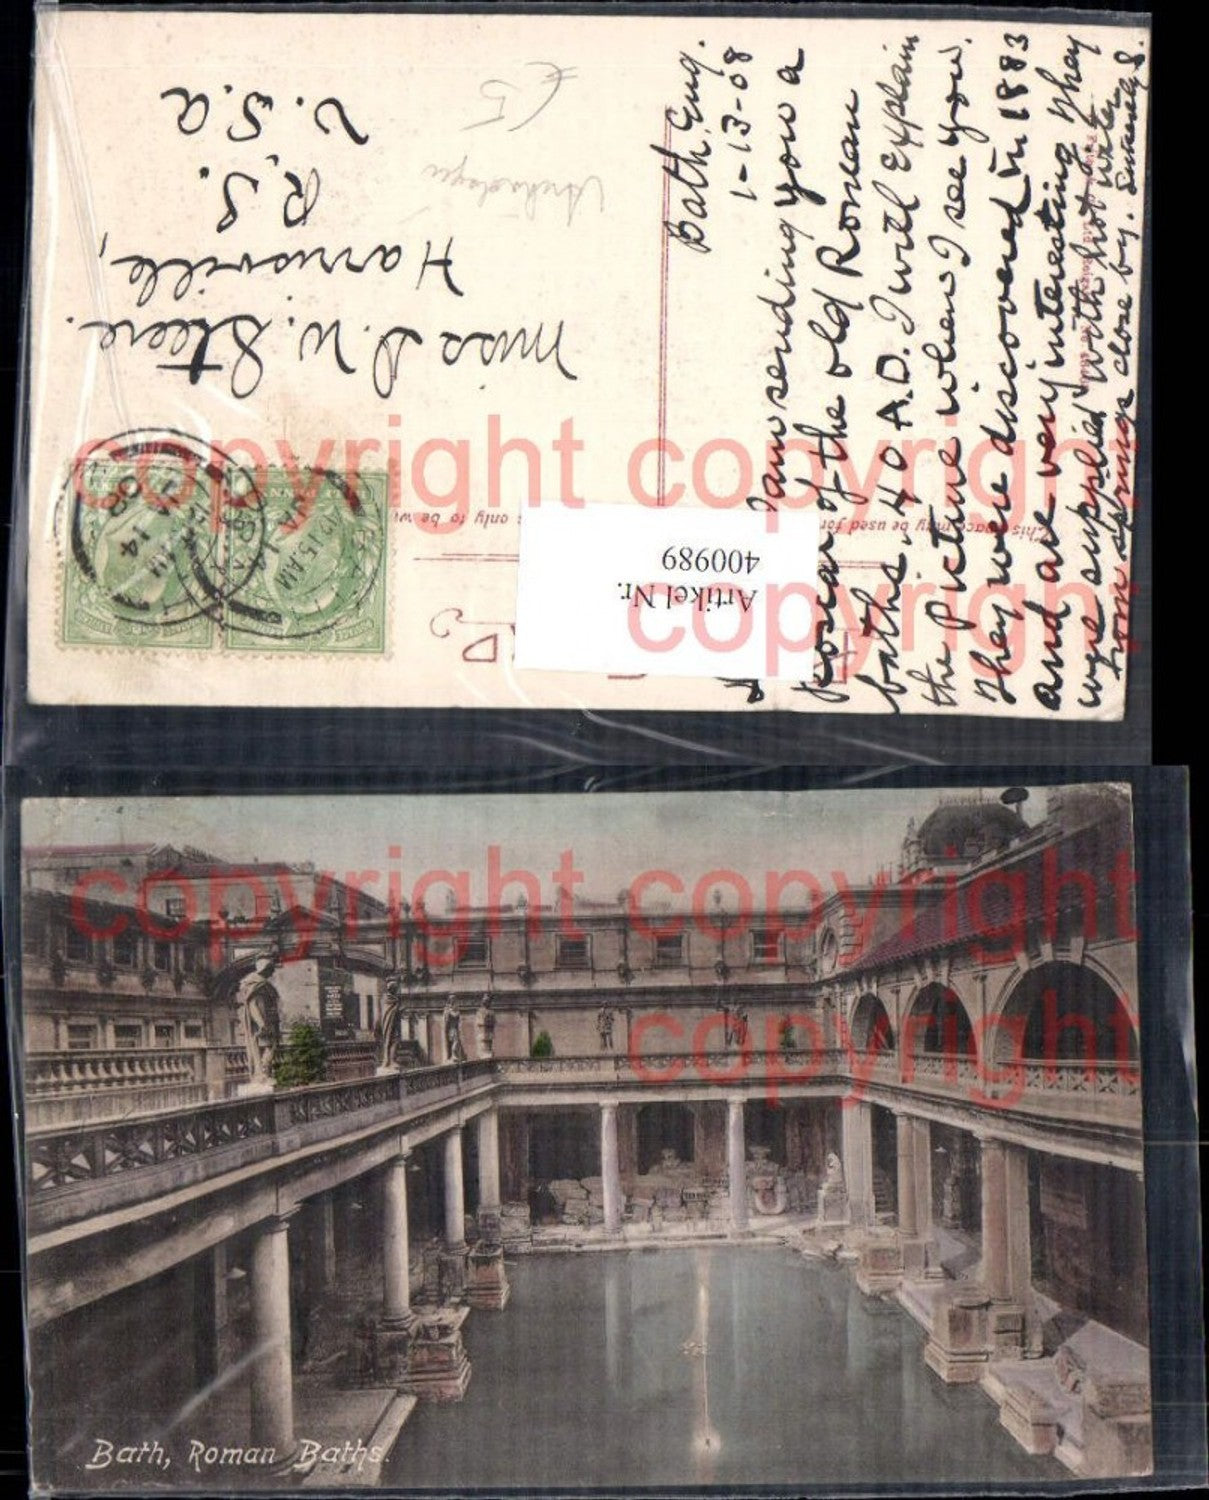 Bath, Eng.
1-13-08
I am sending you a
of the old Roman
baths 40 A.D. I will explain
the picture when I see you.
They were discovered in 1883
and are very interesting. They
were supplied with hot water
from springs close by. Sincerely S.
Miss D. W. Steere.
Harrisville,
R.I.
U.S.A
£5
This space may be used for
only to be
Artikel Nr.
400989
copyright copyright
copyright
copyright copyright
copyright
Bath, Roman Baths.